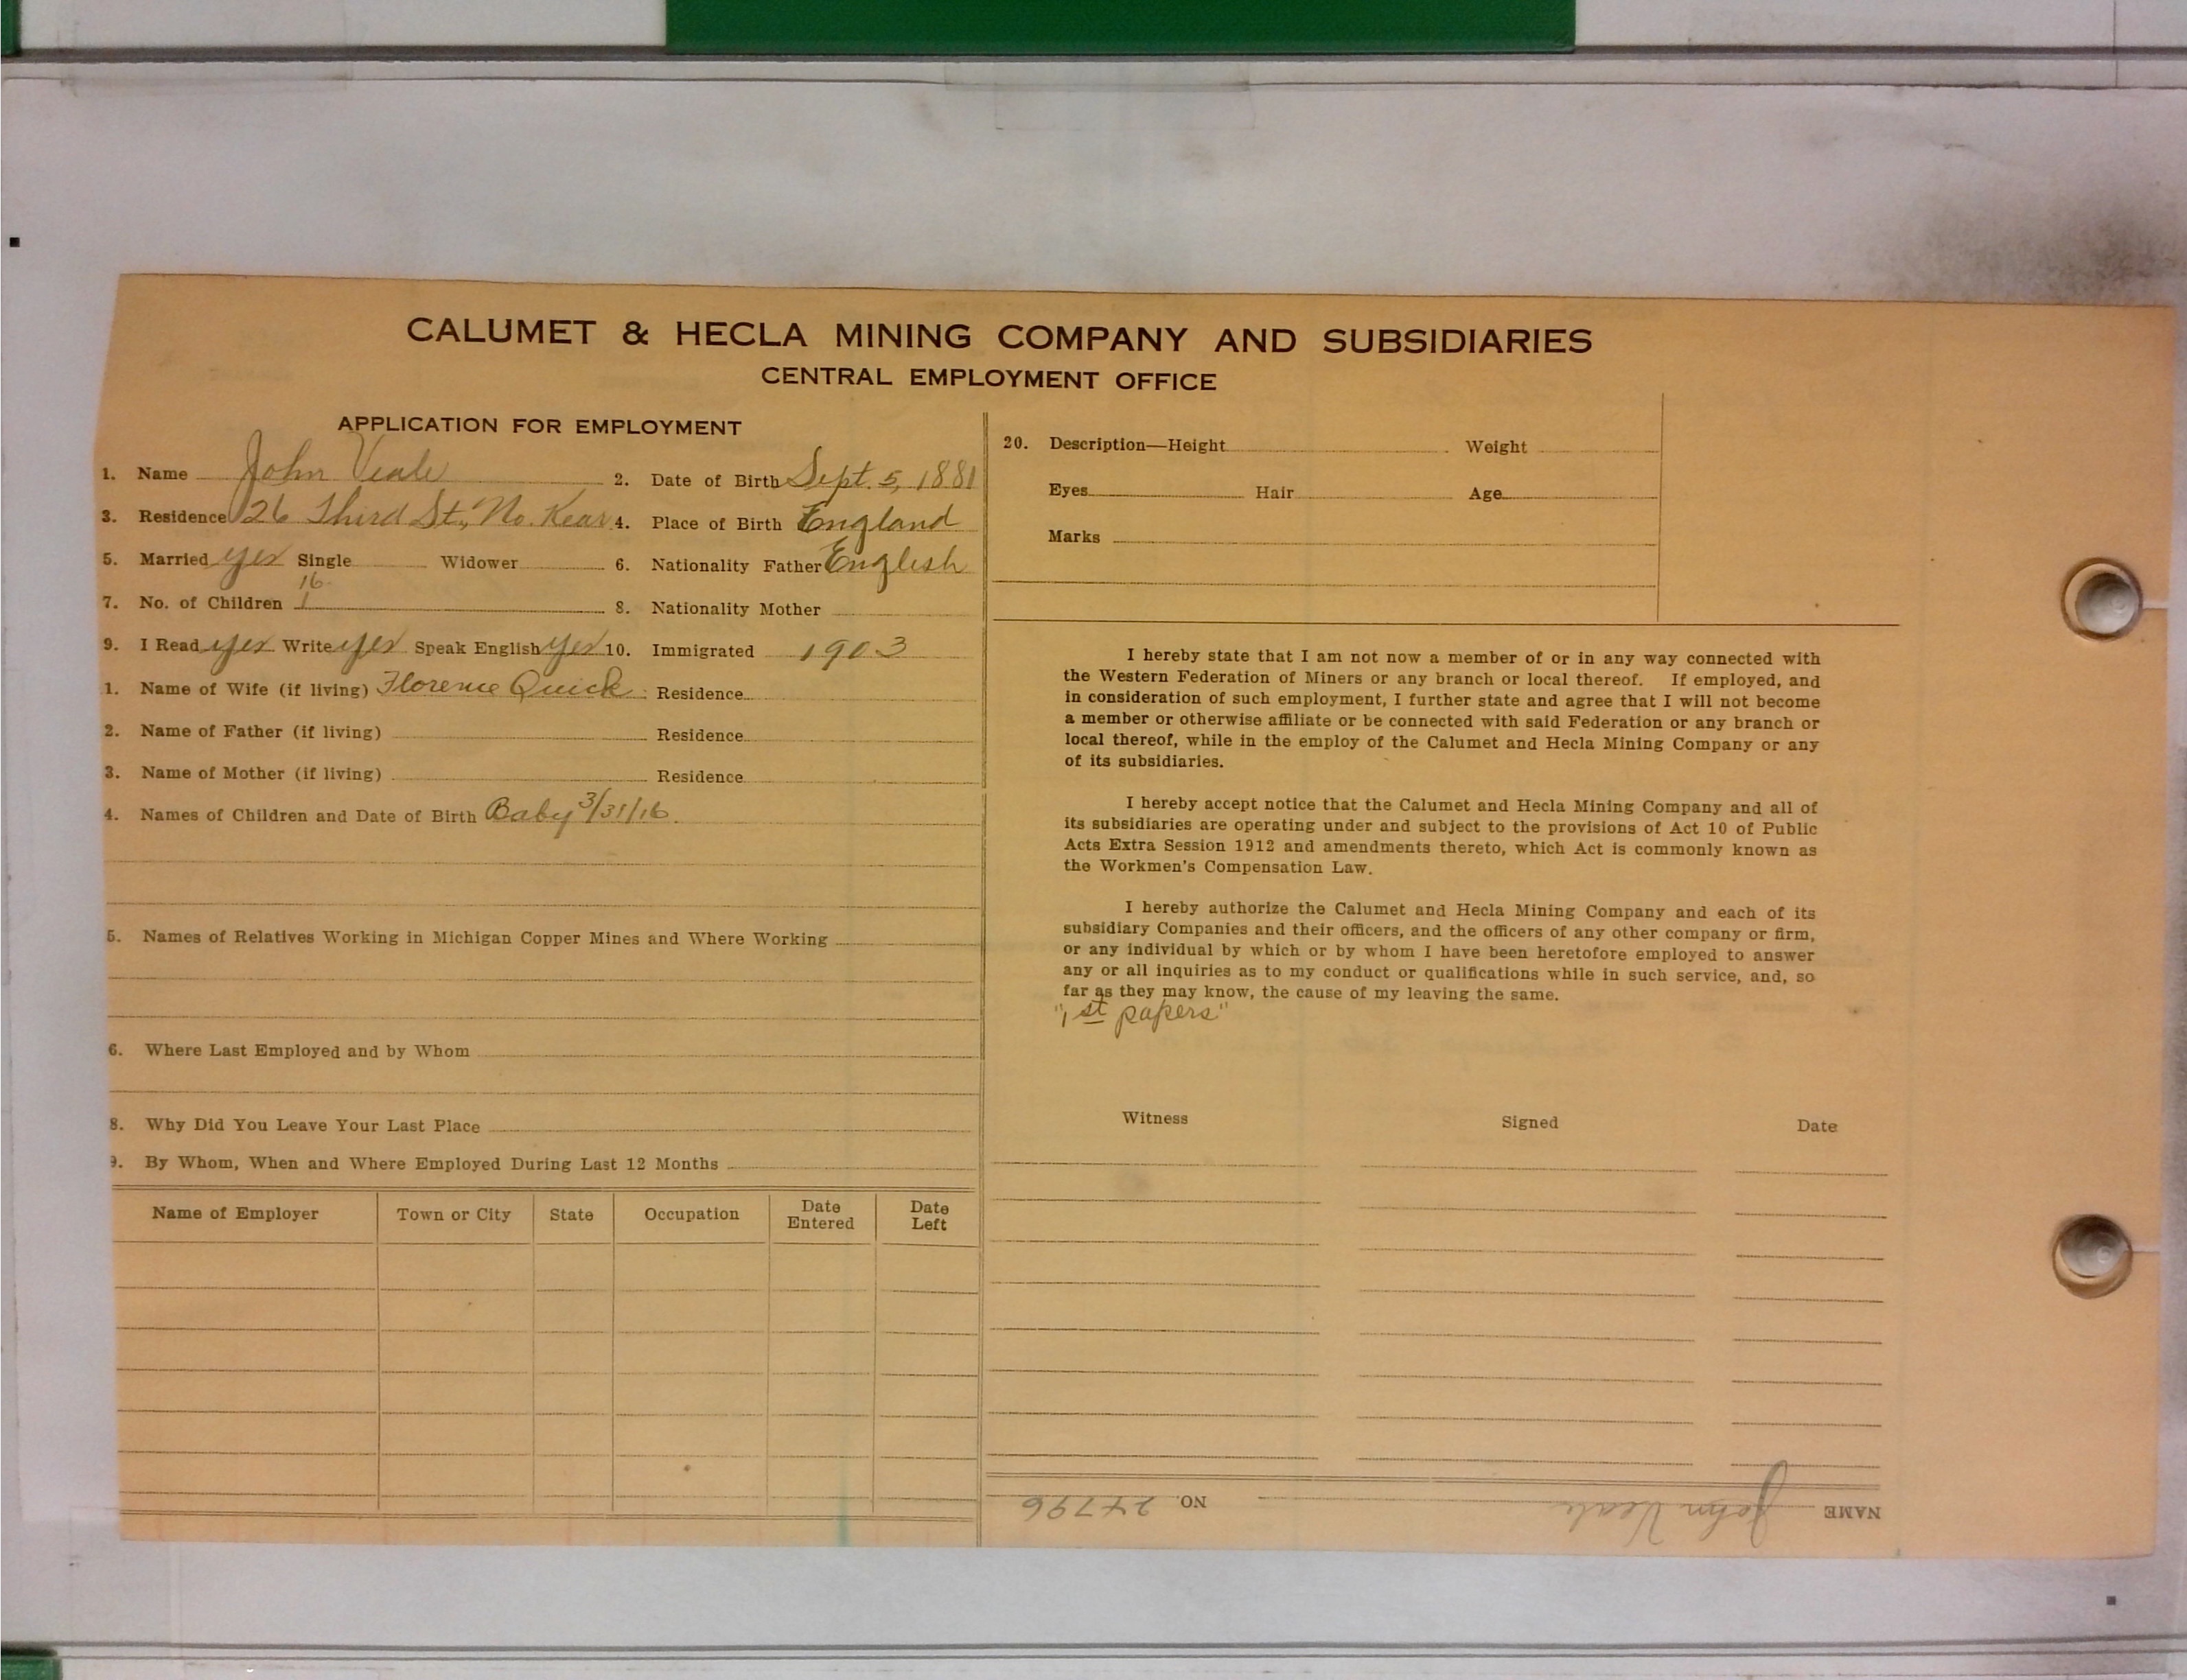 CALUMET & HECLA MINING COMPANY AND SUBSIDIARIES
CENTRAL EMPLOYMENT OFFICE
APPLICATION FOR EMPLOYMENT
1. Name John Veale 2. Date of Birth Sept. 5, 1881
3. Residence 126 Third St., No. Kear. 4. Place of Birth England
5. Married yes Single Widower 6. Nationality Father English
16.
7. No. of Children 1 8. Nationality Mother
9. I Read yes Write yes Speak English yes 10. Immigrated 1903
1. Name of Wife (if living) Florence Quick Residence
2. Name of Father (if living) Residence
3. Name of Mother (if living) Residence
4. Names of Children and Date of Birth Baby 3/31/16.
5. Names of Relatives Working in Michigan Copper Mines and Where Working
6. Where Last Employed and by Whom
8. Why Did You Leave Your Last Place
9. By Whom, When and Where Employed During Last 12 Months
Name of Employer Town or City State Occupation Date Entered Date Left
20. Description—Height Weight
Eyes Hair Age
Marks
I hereby state that I am not now a member of or in any way connected with
the Western Federation of Miners or any branch or local thereof. If employed, and
in consideration of such employment, I further state and agree that I will not become
a member or otherwise affiliate or be connected with said Federation or any branch or
local thereof, while in the employ of the Calumet and Hecla Mining Company or any
of its subsidiaries.
I hereby accept notice that the Calumet and Hecla Mining Company and all of
its subsidiaries are operating under and subject to the provisions of Act 10 of Public
Acts Extra Session 1912 and amendments thereto, which Act is commonly known as
the Workmen's Compensation Law.
I hereby authorize the Calumet and Hecla Mining Company and each of its
subsidiary Companies and their officers, and the officers of any other company or firm,
or any individual by which or by whom I have been heretofore employed to answer
any or all inquiries as to my conduct or qualifications while in such service, and, so
far as they may know, the cause of my leaving the same.
"1st papers"
Witness Signed Date
NAME John Veale NO. 24796